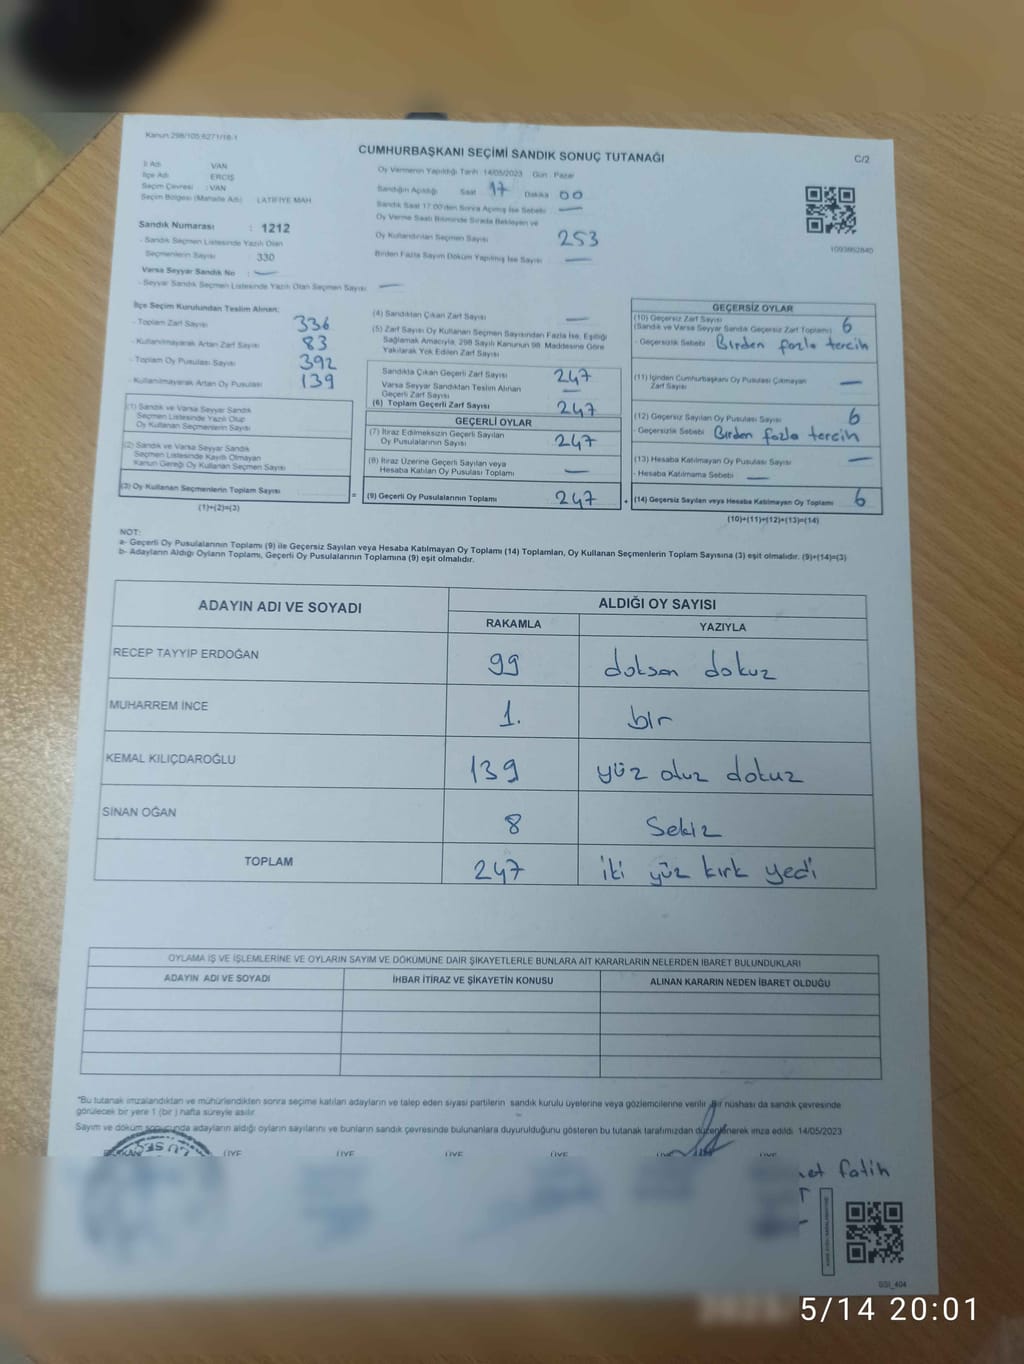 Kanun:298/105;6271/18-1
CUMHURBAŞKANI SEÇİMİ SANDIK SONUÇ TUTANAĞI
C/2
İl Adı VAN
İlçe Adı ERCİŞ
Seçim Çevresi : VAN
Seçim Bölgesi (Mahalle Adı) LATİFİYE MAH.
Oy Vermenin Yapıldığı Tarih :14/05/2023 Gün : Pazar
Sandığın Açıldığı Saat 17 Dakika 00
Sandık Saat 17:00'den Sonra Açılmış İse Sebebi —
Oy Verme Saati Bitiminde Sırada Bekleyen ve
Oy Kullandırılan Seçmen Sayısı 253
Birden Fazla Sayım Döküm Yapılmış İse Sayısı —
1093952840
Sandık Numarası : 1212
- Sandık Seçmen Listesinde Yazılı Olan
Seçmenlerin Sayısı 330
Varsa Seyyar Sandık No : —
- Seyyar Sandık Seçmen Listesinde Yazılı Olan Seçmen Sayısı —
İlçe Seçim Kurulundan Teslim Alınan:
- Toplam Zarf Sayısı 336
- Kullanılmayarak Artan Zarf Sayısı 83
- Toplam Oy Pusulası Sayısı 392
- Kullanılmayarak Artan Oy Pusulası 139
(1) Sandık ve Varsa Seyyar Sandık
Seçmen Listesinde Yazılı Olup
Oy Kullanan Seçmenlerin Sayısı
(2) Sandık ve Varsa Seyyar Sandık
Seçmen Listesinde Kayıtlı Olmayan
Kanun Gereği Oy Kullanan Seçmen Sayısı
(3) Oy Kullanan Seçmenlerin Toplam Sayısı
(1)+(2)=(3)
=
(4) Sandıktan Çıkan Zarf Sayısı —
(5) Zarf Sayısı Oy Kullanan Seçmen Sayısından Fazla İse, Eşitliği
Sağlamak Amacıyla, 298 Sayılı Kanunun 98. Maddesine Göre
Yakılarak Yok Edilen Zarf Sayısı
Sandıkta Çıkan Geçerli Zarf Sayısı 247
Varsa Seyyar Sandıktan Teslim Alınan
Geçerli Zarf Sayısı —
(6) Toplam Geçerli Zarf Sayısı 247
GEÇERLİ OYLAR
(7) İtiraz Edilmeksizin Geçerli Sayılan
Oy Pusulalarının Sayısı 247
(8) İtiraz Üzerine Geçerli Sayılan veya
Hesaba Katılan Oy Pusulası Toplamı —
(9) Geçerli Oy Pusulalarının Toplamı 247
+
GEÇERSİZ OYLAR
(10) Geçersiz Zarf Sayısı
(Sandık ve Varsa Seyyar Sandık Geçersiz Zarf Toplamı) 6
- Geçersizlik Sebebi Birden fazla tercih
(11) İçinden Cumhurbaşkanı Oy Pusulası Çıkmayan
Zarf Sayısı —
(12) Geçersiz Sayılan Oy Pusulası Sayısı 6
- Geçersizlik Sebebi Birden fazla tercih
(13) Hesaba Katılmayan Oy Pusulası Sayısı —
- Hesaba Katılmama Sebebi —
(14) Geçersiz Sayılan veya Hesaba Katılmayan Oy Toplamı 6
(10)+(11)+(12)+(13)=(14)
NOT:
a- Geçerli Oy Pusulalarının Toplamı (9) ile Geçersiz Sayılan veya Hesaba Katılmayan Oy Toplamı (14) Toplamları, Oy Kullanan Seçmenlerin Toplam Sayısına (3) eşit olmalıdır. (9)+(14)=(3)
b- Adayların Aldığı Oyların Toplamı, Geçerli Oy Pusulalarının Toplamına (9) eşit olmalıdır.
ADAYIN ADI VE SOYADI
ALDIĞI OY SAYISI
RAKAMLA YAZIYLA
RECEP TAYYİP ERDOĞAN 99 doksan dokuz
MUHARREM İNCE 1. bir
KEMAL KILIÇDAROĞLU 139 yüz otuz dokuz
SİNAN OĞAN 8 Sekiz
TOPLAM 247 iki yüz kırk yedi
OYLAMA İŞ VE İŞLEMLERİNE VE OYLARIN SAYIM VE DÖKÜMÜNE DAİR ŞİKAYETLERLE BUNLARA AİT KARARLARIN NELERDEN İBARET BULUNDUKLARI
ADAYIN ADI VE SOYADI İHBAR İTİRAZ VE ŞİKAYETİN KONUSU ALINAN KARARIN NEDEN İBARET OLDUĞU
"Bu tutanak imzalandıktan ve mühürlendikten sonra seçime katılan adayların ve talep eden siyasi partilerin sandık kurulu üyelerine veya gözlemcilerine verilir. Bir nüshası da sandık çevresinde
görülecek bir yere 1 (bir) hafta süreyle asılır.
Sayım ve döküm sonucunda adayların aldığı oyların sayılarını ve bunların sandık çevresinde bulunanlara duyurulduğunu gösteren bu tutanak tarafımızdan düzenlenerek imza edildi. 14/05/2023
ÜYE ÜYE ÜYE ÜYE
fatih
SSI_404
5/14 20:01